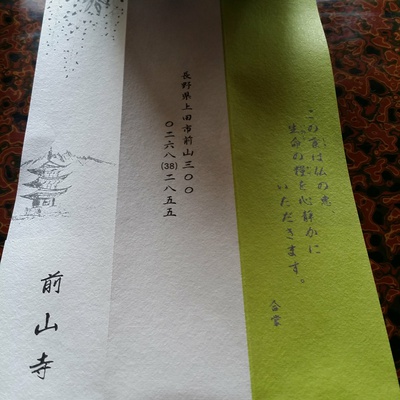 この食は仏の恵
生命の糧を心静かに
いただきます。
合掌
長野県上田市前山三〇〇
〇二六八(38)二八五五
前山寺